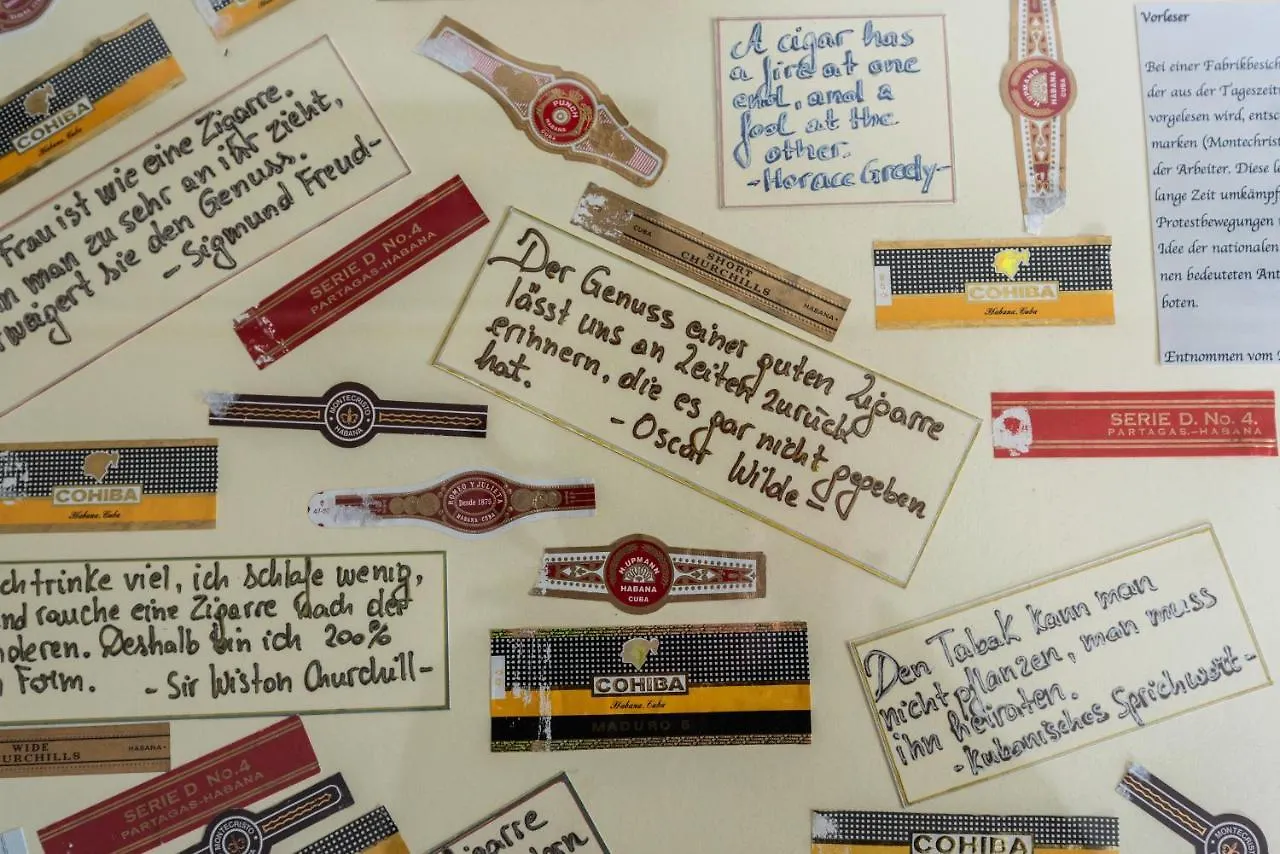 COHIBA
Habana, Cuba
Frau ist wie eine Zigarre.
man zu sehr an ihr zieht,
verweigert sie den Genuss.
- Sigmund Freud-
PUNCH
HABANA
CUBA
A cigar has
a fire at one
end, and a
fool at the
other.
-Horace Gredy-
H.UPMANN
HABANA
CUBA
Vorleser
Bei einer Fabrikbesich
der aus der Tageszeit
vorgelesen wird, entsc
marken (Montechrist
der Arbeiter. Diese l
lange Zeit umkämpf
Protestbewegungen
Idee der nationalen
nen bedeuteten Ant
boten.
Entnommen vom
SERIE D No.4
PARTAGAS-HABANA
CUBA
SHORT
CHURCHILLS
HABANA
COHIBA
Habana, Cuba
Der Genuss einer guten Zigarre
lässt uns an Zeiten zurück
erinnern, die es gar nicht gegeben
hat.
- Oscar Wilde -
MONTECRISTO
HABANA
SERIE D. No. 4.
PARTAGAS.-HABANA
COHIBA
Habana, Cuba
ROMEO Y JULIETA
Desde 1875
HABANA, CUBA
H.UPMANN
HABANA
CUBA
ch trinke viel, ich schlafe wenig,
nd rauche eine Zigarre nach der
nderen. Deshalb bin ich 200%
Form.
- Sir Wiston Churchill-
COHIBA
Habana, Cuba
MADURO 5
Den Tabak kann man
nicht pflanzen, man muss
ihn heiraten.
- Kubanisches Sprichwort -
WIDE
URCHILLS
HABANA
SERIE D No.4
PARTAGAS-HABANA
MONTECRISTO
Zigarre
COHIBA
MONTECRISTO